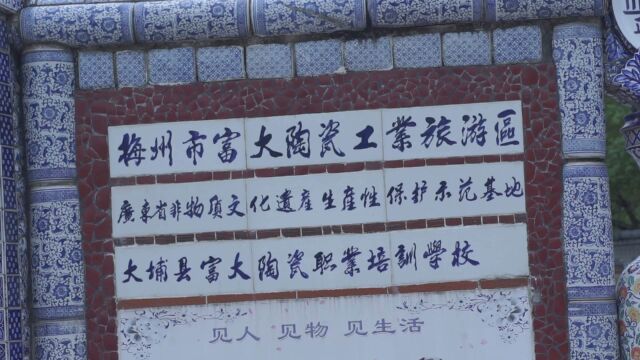 梅州市富大陶瓷工業旅游區
廣東省非物质文化遺產生產性保护示范基地
大埔县富大陶瓷职業培訓學校
见人 见物 见生活